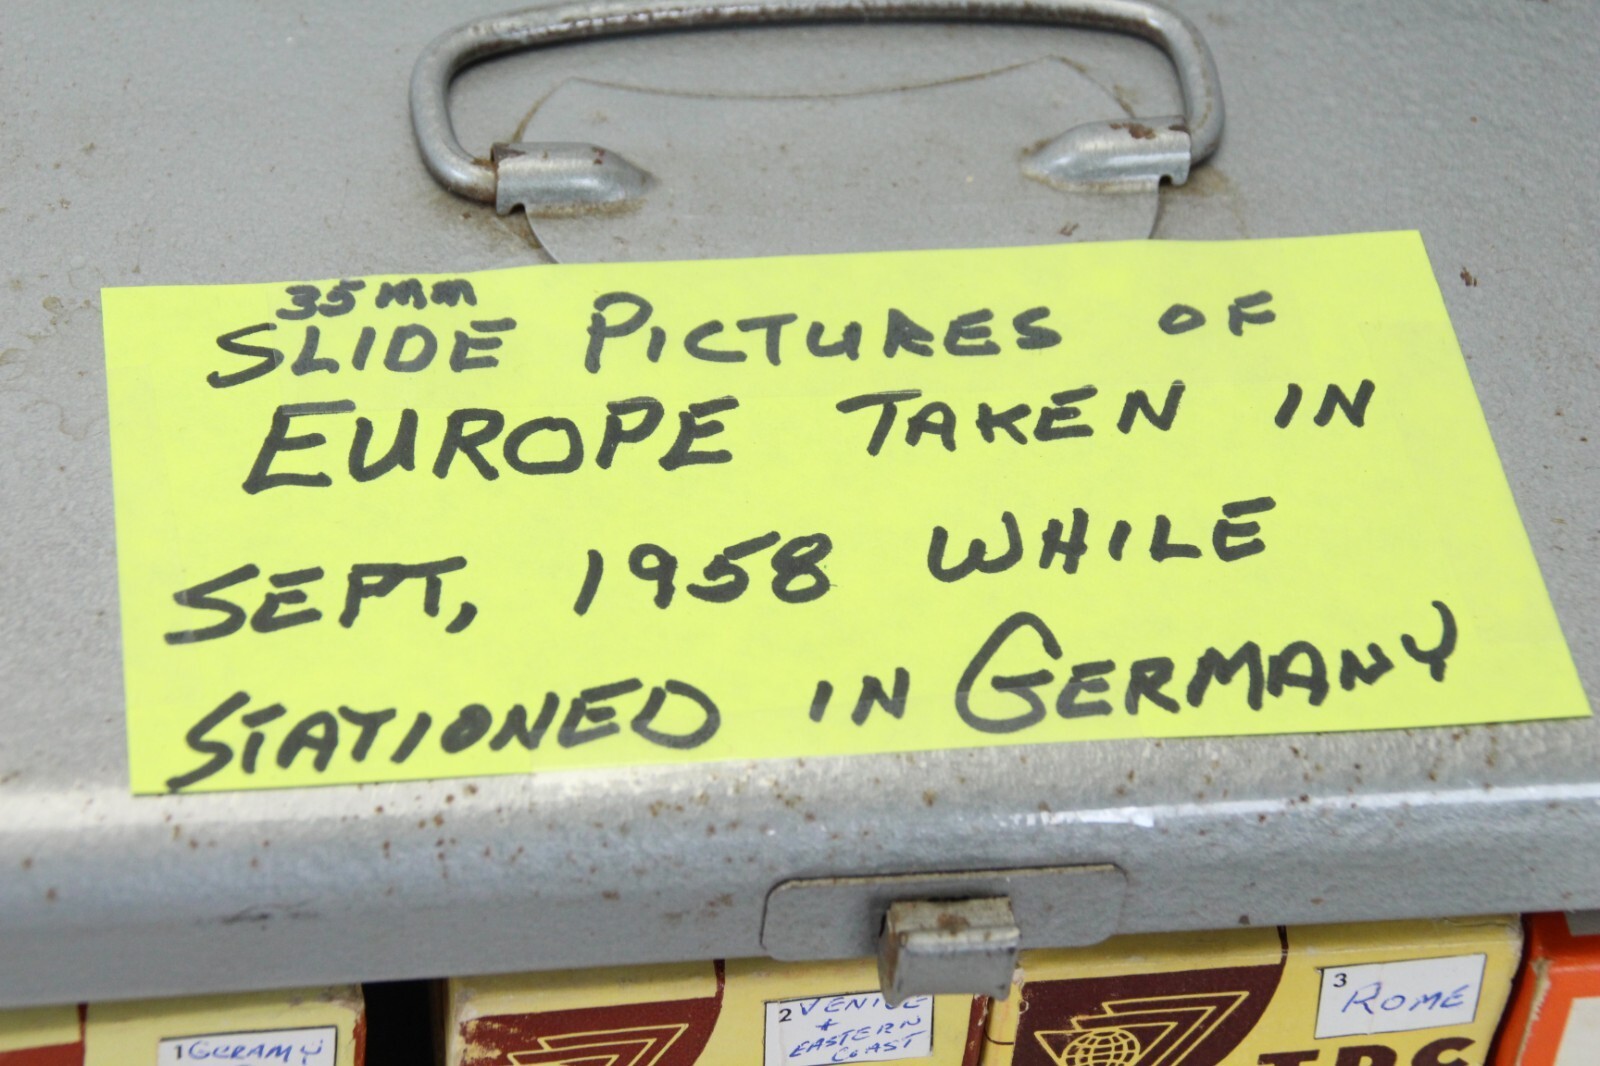 35mm
SLIDE PICTURES OF
EUROPE TAKEN IN
SEPT, 1958 WHILE
STATIONED IN GERMANY
1 GERAMY
2 VENICE
+
EASTERN
COAST
3 ROME